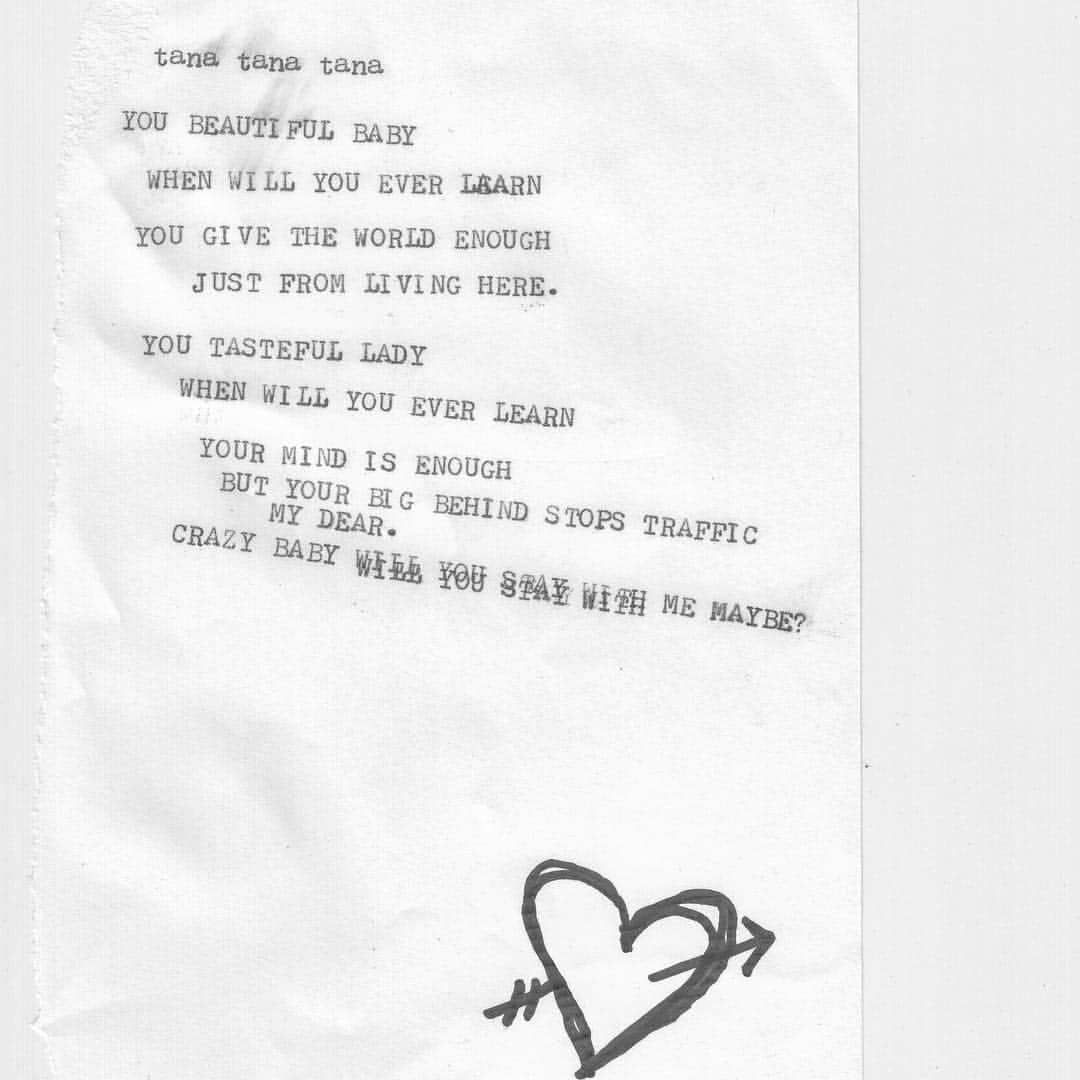 tana tana tana
YOU BEAUTIFUL BABY
WHEN WILL YOU EVER LEARN
YOU GIVE THE WORLD ENOUGH
JUST FROM LIVING HERE.
YOU TASTEFUL LADY
WHEN WILL YOU EVER LEARN
YOUR MIND IS ENOUGH
BUT YOUR BIG BEHIND STOPS TRAFFIC
MY DEAR.
CRAZY BABY WILL YOU STAY WITH ME MAYBE?